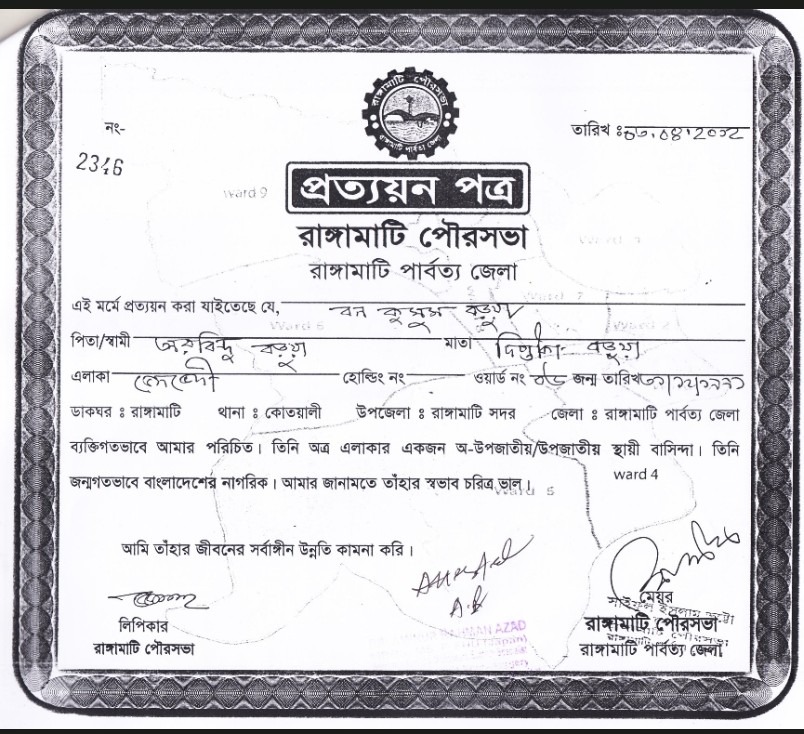 রাঙ্গামাটি পৌরসভা
রাঙ্গামাটি পার্বত্য জেলা
নং-
2346
তারিখ :
প্রত্যয়ন পত্র
রাঙ্গামাটি পৌরসভা
রাঙ্গামাটি পার্বত্য জেলা
ward 9
এই মর্মে প্রত্যয়ন করা যাইতেছে যে, বন কুসুম বড়ুয়া
পিতা/স্বামী অরবিন্দু বড়ুয়া মাতা বড়ুয়া
এলাকা হোল্ডিং নং ওয়ার্ড নং জন্ম তারিখ
ডাকঘর : রাঙ্গামাটি থানা : কোতয়ালী উপজেলা : রাঙ্গামাটি সদর জেলা : রাঙ্গামাটি পার্বত্য জেলা
ব্যক্তিগতভাবে আমার পরিচিত। তিনি অত্র এলাকার একজন অ-উপজাতীয়/উপজাতীয় স্থায়ী বাসিন্দা। তিনি
জন্মগতভাবে বাংলাদেশের নাগরিক। আমার জানামতে তাঁহার স্বভাব চরিত্র ভাল।
ward 4
আমি তাঁহার জীবনের সর্বাঙ্গীন উন্নতি কামনা করি।
লিপিকার
রাঙ্গামাটি পৌরসভা
AZAD
মেয়র
রাঙ্গামাটি পৌরসভা
রাঙ্গামাটি পার্বত্য জেলা